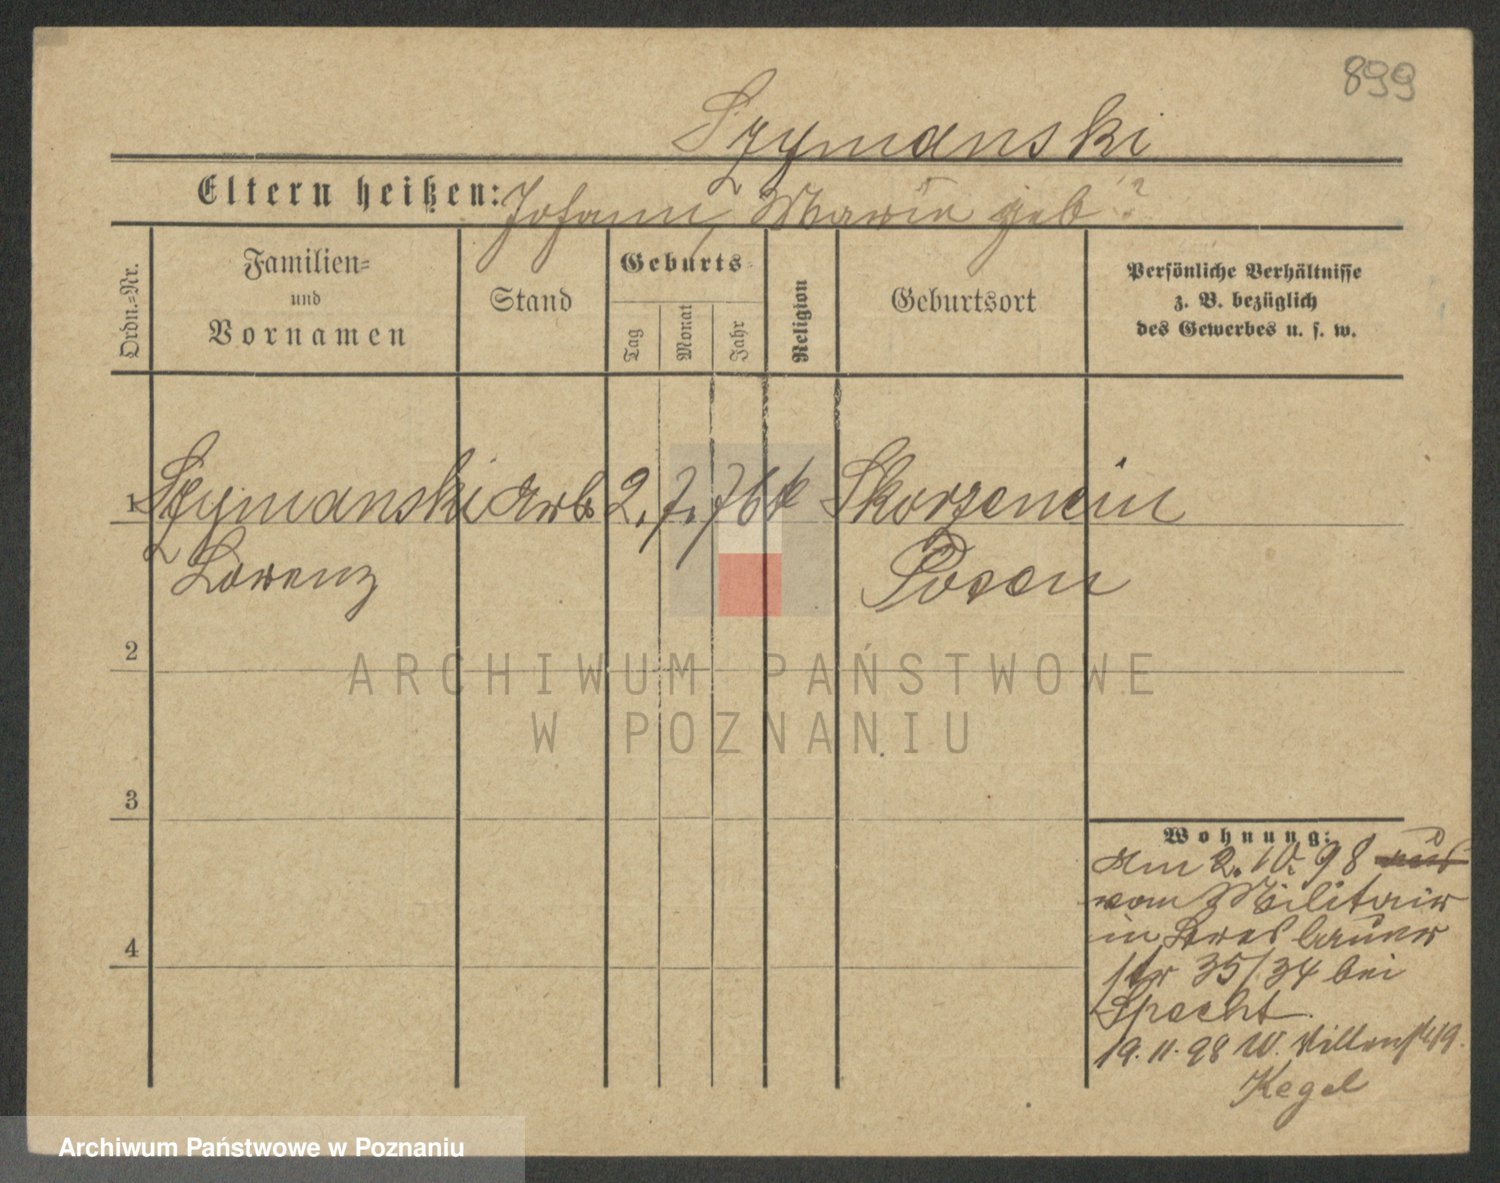 899
Szymanski
Eltern heißen: Johann, Maria geb ?
Ordn.-Nr.
Familien-
und
Vornamen
Stand
Geburts-
Tag
Monat
Jahr
Religion
Geburtsort
Persönliche Verhältnisse
z. B. bezüglich
des Gewerbes u. s. w.
1 Szymanski Arb 2. 7. 76 k Skorzencin
Lorenz Posen
2
3
4
Wohnung:
Am 2. 10. 98 aus
vom Militair
in bauer
str 35/34 bei
Specht.
19. 11. 98 W. 49.
Kegel
ARCHIWUM PAŃSTWOWE
W POZNANIU
Archiwum Państwowe w Poznaniu